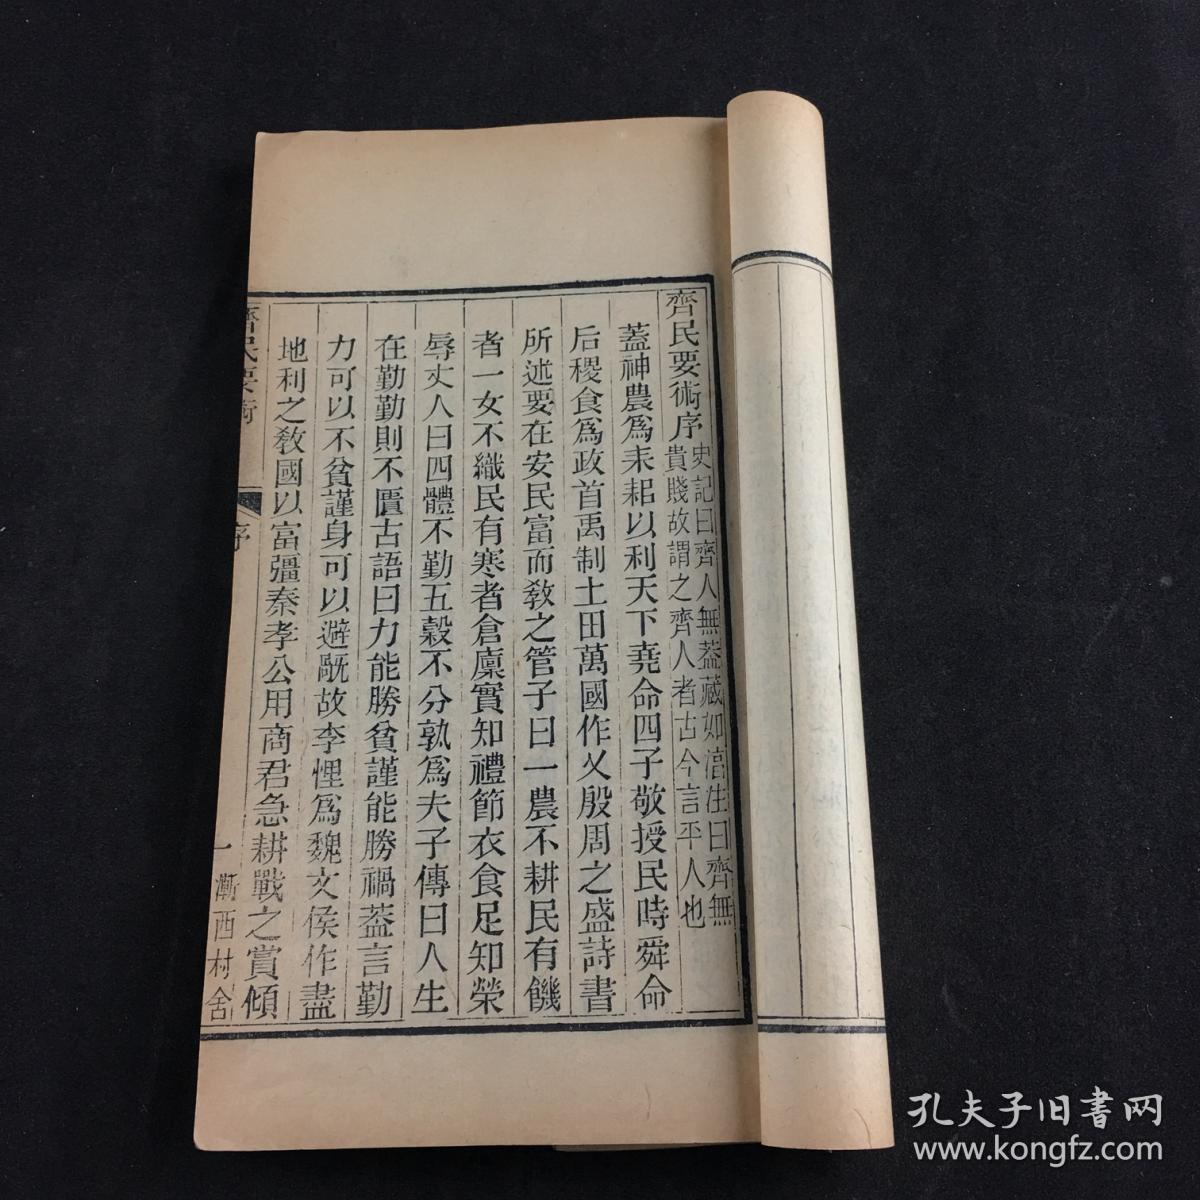 齊民要術序史記曰齊人無葢藏如淳注曰齊無
貴賤故謂之齊人者古今言平人也
葢神農爲耒耜以利天下堯命四子敬授民時舜命
后稷食爲政首禹制土田萬國作乂殷周之盛詩書
所述要在安民富而敎之管子曰一農不耕民有饑
者一女不織民有寒者倉廩實知禮節衣食足知榮
辱丈人曰四體不勤五穀不分孰爲夫子傳曰人生
在勤勤則不匱古語曰力能勝貧謹能勝禍葢言勤
力可以不貧謹身可以避旤故李悝爲魏文侯作盡
地利之敎國以富彊秦孝公用商君急耕戰之賞傾
齊民要術
序
一
漸西村舍
孔夫子旧書网
www.kongfz.com